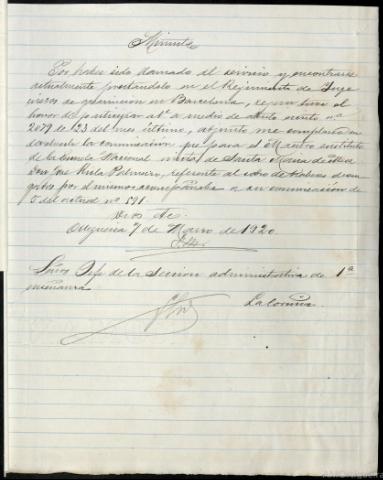 Minuta
Por haber sido llamado al servicio y encontrarse
actualmente prestandolo en el Regimiento de Inge
nieros de guarnicion en Barcelona, segun tuve el
honor de participar á V. a medio de atento nº
2079 de 23 del mes último, adjunto me complazco en
devolverle la comunicacion que para el Maestro sustituto
de la Escuela Nacional mixta de Santa Maria de
Don José Peña Palmeiro, referente al cobro de haberes deven
gados por el mismo acompañaba a su comunicacion de
5 del actual nº 591.
Dios etc.
Ortigueira 7 de Marzo de 1920.
Señor Jefe de la Seccion administrativa de 1ª
enseñanza
La Coruña.